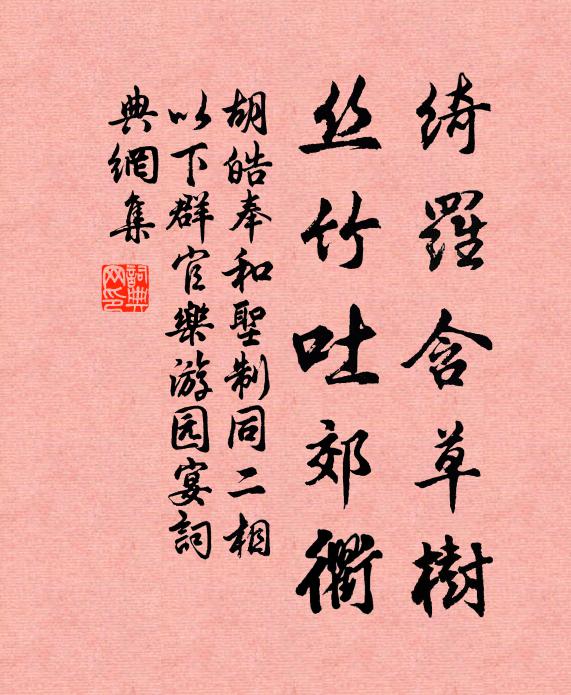 绮罗含草樹
丝竹吐郊衢
胡皓奉和聖制同二相
以下群官樂游园宴詞
典網集
詞典网印